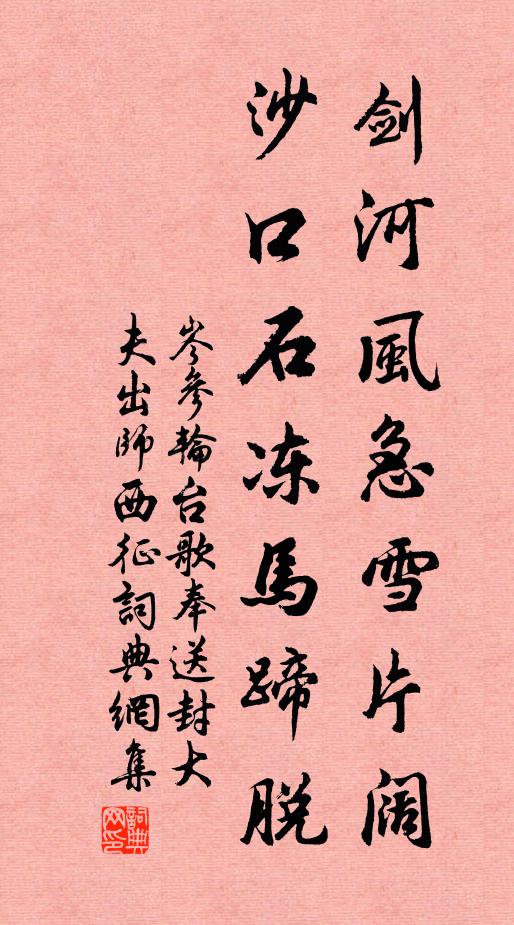 剑河風急雪片阔
沙口石冻馬蹄脱
岑參輪台歌奉送封大
夫出師西征詞典網集
詞典网印